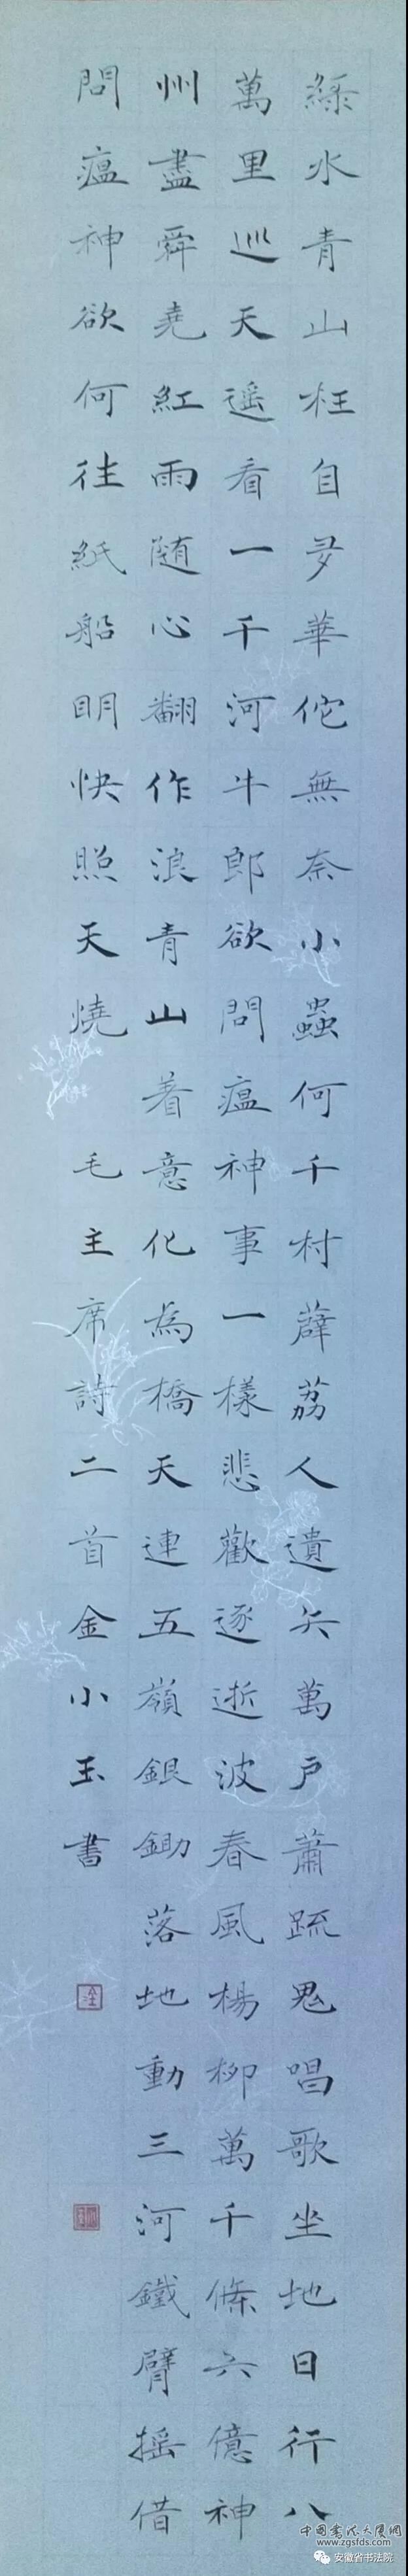 綠水青山枉自多華佗無奈小蟲何千村薜荔人遺矢萬户蕭疏鬼唱歌坐地日行八
萬里巡天遥看一千河牛郎欲問瘟神事一樣悲歡逐逝波春風楊柳萬千條六億神
州盡舜堯紅雨随心翻作浪青山着意化為橋天連五嶺銀鋤落地動三河鐵臂摇借
問瘟神欲何往紙船明快照天燒
毛主席詩二首金小玉書
中國書法大廈網
www.zgsfds.com
安徽省书法院